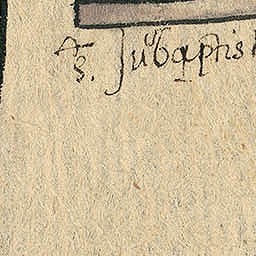 S. Jubaptis